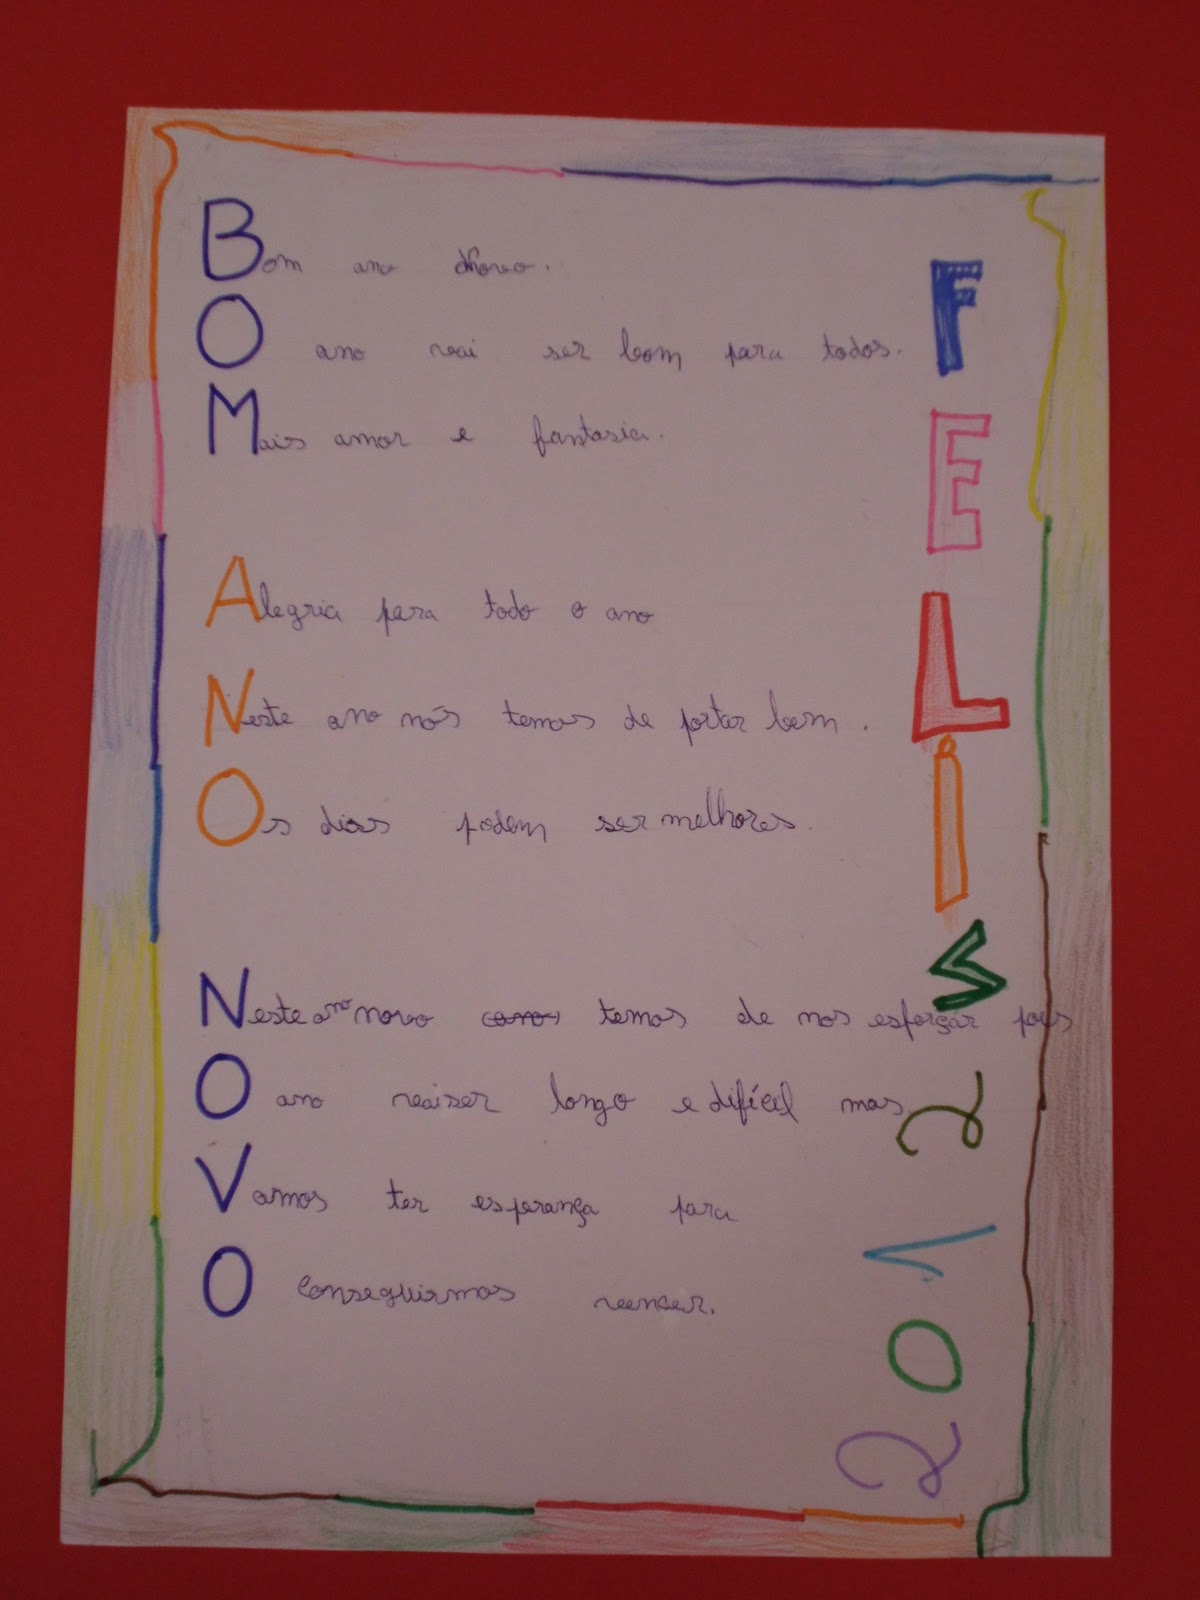 Bom ano novo.
O ano vai ser bom para todos.
Mais amor e fantasia.
Alegria para todo o ano
Neste ano nós temos de portar bem.
Os dias podem ser melhores.
Neste ano novo (ano) temos de nos esforçar pois
O ano vai ser longo e difícil mas
Vamos ter esperança para
O conseguirmos vencer.
FELIS
2012